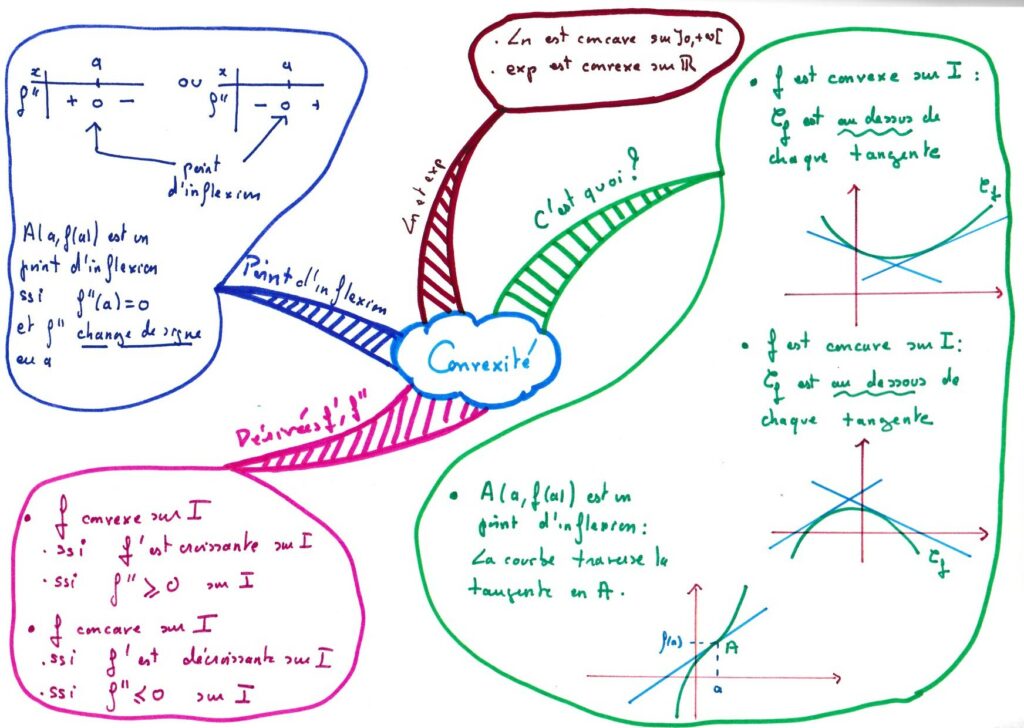 Convexité
Point d'inflexion
x a
f'' + 0 -
ou
x a
f'' - 0 +
point
d'inflexion
A(a,f(a)) est un
point d'inflexion
ssi f''(a)=0
et f'' change de signe
en a
Ln et exp
. Ln est concave sur ]0,+∞[
. exp est convexe sur ℝ
C'est quoi ?
• f est convexe sur I :
𝒞f est au dessus de
chaque tangente
𝒞f
• f est concave sur I :
𝒞f est au dessous de
chaque tangente
𝒞f
• A(a,f(a)) est un
point d'inflexion :
La courbe traverse la
tangente en A.
f(a)
A
a
Dérivées f', f''
• f convexe sur I
. ssi f' est croissante sur I
. ssi f'' ⩾ 0 sur I
• f concave sur I
. ssi f' est décroissante sur I
. ssi f'' ⩽ 0 sur I